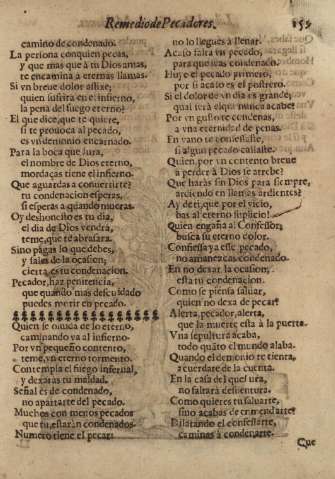 Remedio de Pecadores.
159
camino de condenado.
La persona con quien pecas,
y que mas que à tu Dios amas,
te encamina a eternas llamas.
Si vn breue dolor aflixe,
quien sufrira en el infierno,
la pena del fuego eterno?
El que dice, que te quiere,
si te prouoca al pecado,
es vn demonio encarnado.
Para la boca que jura,
el nombre de Dios eterno,
mordaças tiene el infierno.
Que aguardas a conuertirte?
tu condenacion esperas,
si esperas a quando mueras.
Oy deshonesto es tu dia,
el dia de Dios vendrà,
teme, que te abrasarà.
Sino pagas lo que debes,
y sales de la ocasion,
cierta es tu condenacion.
Pecador, haz penitencia,
que quando mas descuidado
puedes morir en pecado.
Quien se oluida de lo eterno,
caminando va al infierno.
Por vn pequeño contento,
teme vn eterno tormento.
Contempla el fuego infernal,
y dexaras tu maldad.
Señal es de condenado,
no apartarte del pecado.
Muchos con menos pecados
que tu, estaràn condenados.
Numero tiene el pecar:
no lo llegues à llenar.
Acaso sarà vn pecado,
para que seas condenado.
Huye el pecado primero,
por si acaso es el postrero.
Si el dolor de vn dia es grande,
qual serà el que nunca acabe?
Por vn gusto te condenas,
a vna eternidad de penas.
En vano te confessaste,
si algun pecado callaste.
Quien, por vn contento breue
a perder à Dios se atrebe?
Que haràs sin Dios para siempre,
ardiendo en llamas ardientes?
Ay de ti, que por el vicio,
bas al eterno suplicio!
Quien engaña al Confessor,
busca su eterno color.
Confiessa ya esse pecado,
no amanezcas condenado.
En no dexar la ocasion,
esta tu condenacion.
Como se piensa saluar,
quien no dexa de pecar?
Alerta, pecador, alerta,
que la muerte està à la puerta.
Vna sepultura acaba,
todo quãto el mundo alaba.
Quando el demonio te tienta,
acuerdare de la cuenta.
En la casa del que jura,
no faltarà desuentura.
Como quieres tu saluarte,
sino acabas de enmendarte?
Dilatando el confessarte,
caminas à condenarte.
Que